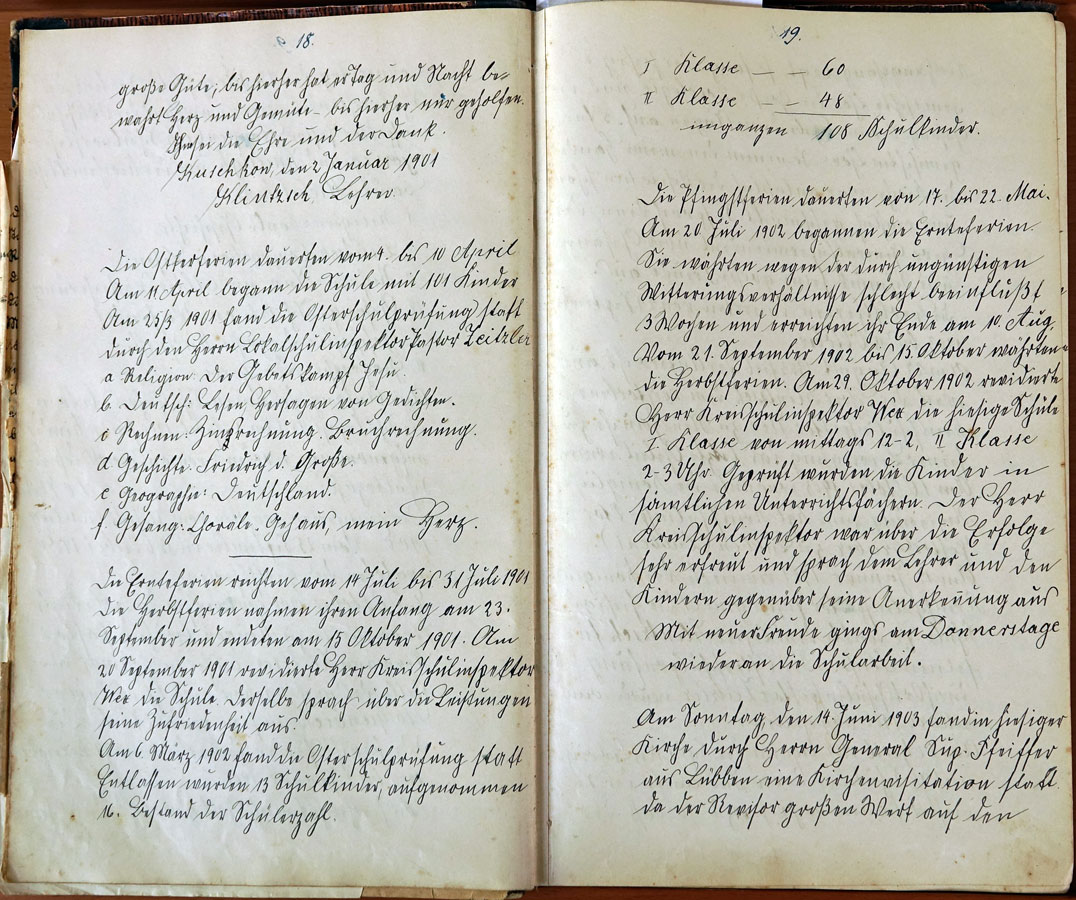 18.
große Güte; bis hierher hat er Tag und Nacht be=
wahrt Herz und Gemüte - bis hierher mir geholfen.
Ihm sei die Ehre und der Dank.
Kuschkow, den 2 Januar 1901
Klintzsch, Lehrer
Die Osterferien dauerten vom 4. bis 10 April
Am 11 April begann die Schule mit 101 Kinder
Am 25/3 1901 fand die Osterschulprüfung statt
durch den Herrn Lokalschulinspektor Pastor Zeitzler
a Religion: Der Gebetskampf Jesu.
b. Deutsch: Lesen, Hersagen von Gedichten.
c Rechnen: Zinsrechnung. Bruchrechnung.
d Geschichte. Friedrich d. Große.
e Geographie: Deutschland.
f. Gesang: Choräle. Geh aus, mein Herz.
Die Ernteferien reichten vom 14 Juli bis 31 Juli 1901
Die Herbstferien nahmen ihren Anfang am 23.
September und endeten am 15 Oktober 1901. Am
20 September 1901 revidierte Herr Kreisschulinspektor
Wex die Schule. Derselbe sprach über die Leistungen
seine Zufriedenheit aus.
Am 6. März 1902 fand die Osterschulprüfung statt
Entlassen wurden 13 Schulkinder, aufgenommen
16. Bestand der Schülerzahl.
19.
I Klasse — — 60
II Klasse — — 48
im ganzen 108 Schulkinder.
Die Pfingstferien dauerten von 17. bis 22. Mai.
Am 20 Juli 1902 begannen die Ernteferien.
Sie währten wegen der durch ungünstigen
Witterungsverhältnisse schlecht beeinflußt
3 Wochen und erreichten ihr Ende am 10. Aug.
Vom 21. September 1902 bis 15. Oktober währten
die Herbstferien. Am 29. Oktober 1902 revidierte
Herr Kreisschulinspektor Wex die hiesige Schule
I. Klasse von mittags 12-2, II Klasse
2-3 Uhr. Geprüft wurden die Kinder in
sämtlichen Unterrichtsfächern. Der Herr
Kreisschulinspektor war über die Erfolge
sehr erfreut und sprach dem Lehrer und den
Kindern gegenüber seine Anerkennung aus
Mit neuer Freude gings am Donnerstage
wieder an die Schularbeit.
Am Sonntag, den 14. Juni 1903 fand in hiesiger
Kirche durch Herrn General Sup. Pfeiffer
aus Lübben eine Kirchenvisitation statt.
da der Revisor großen Wert auf den